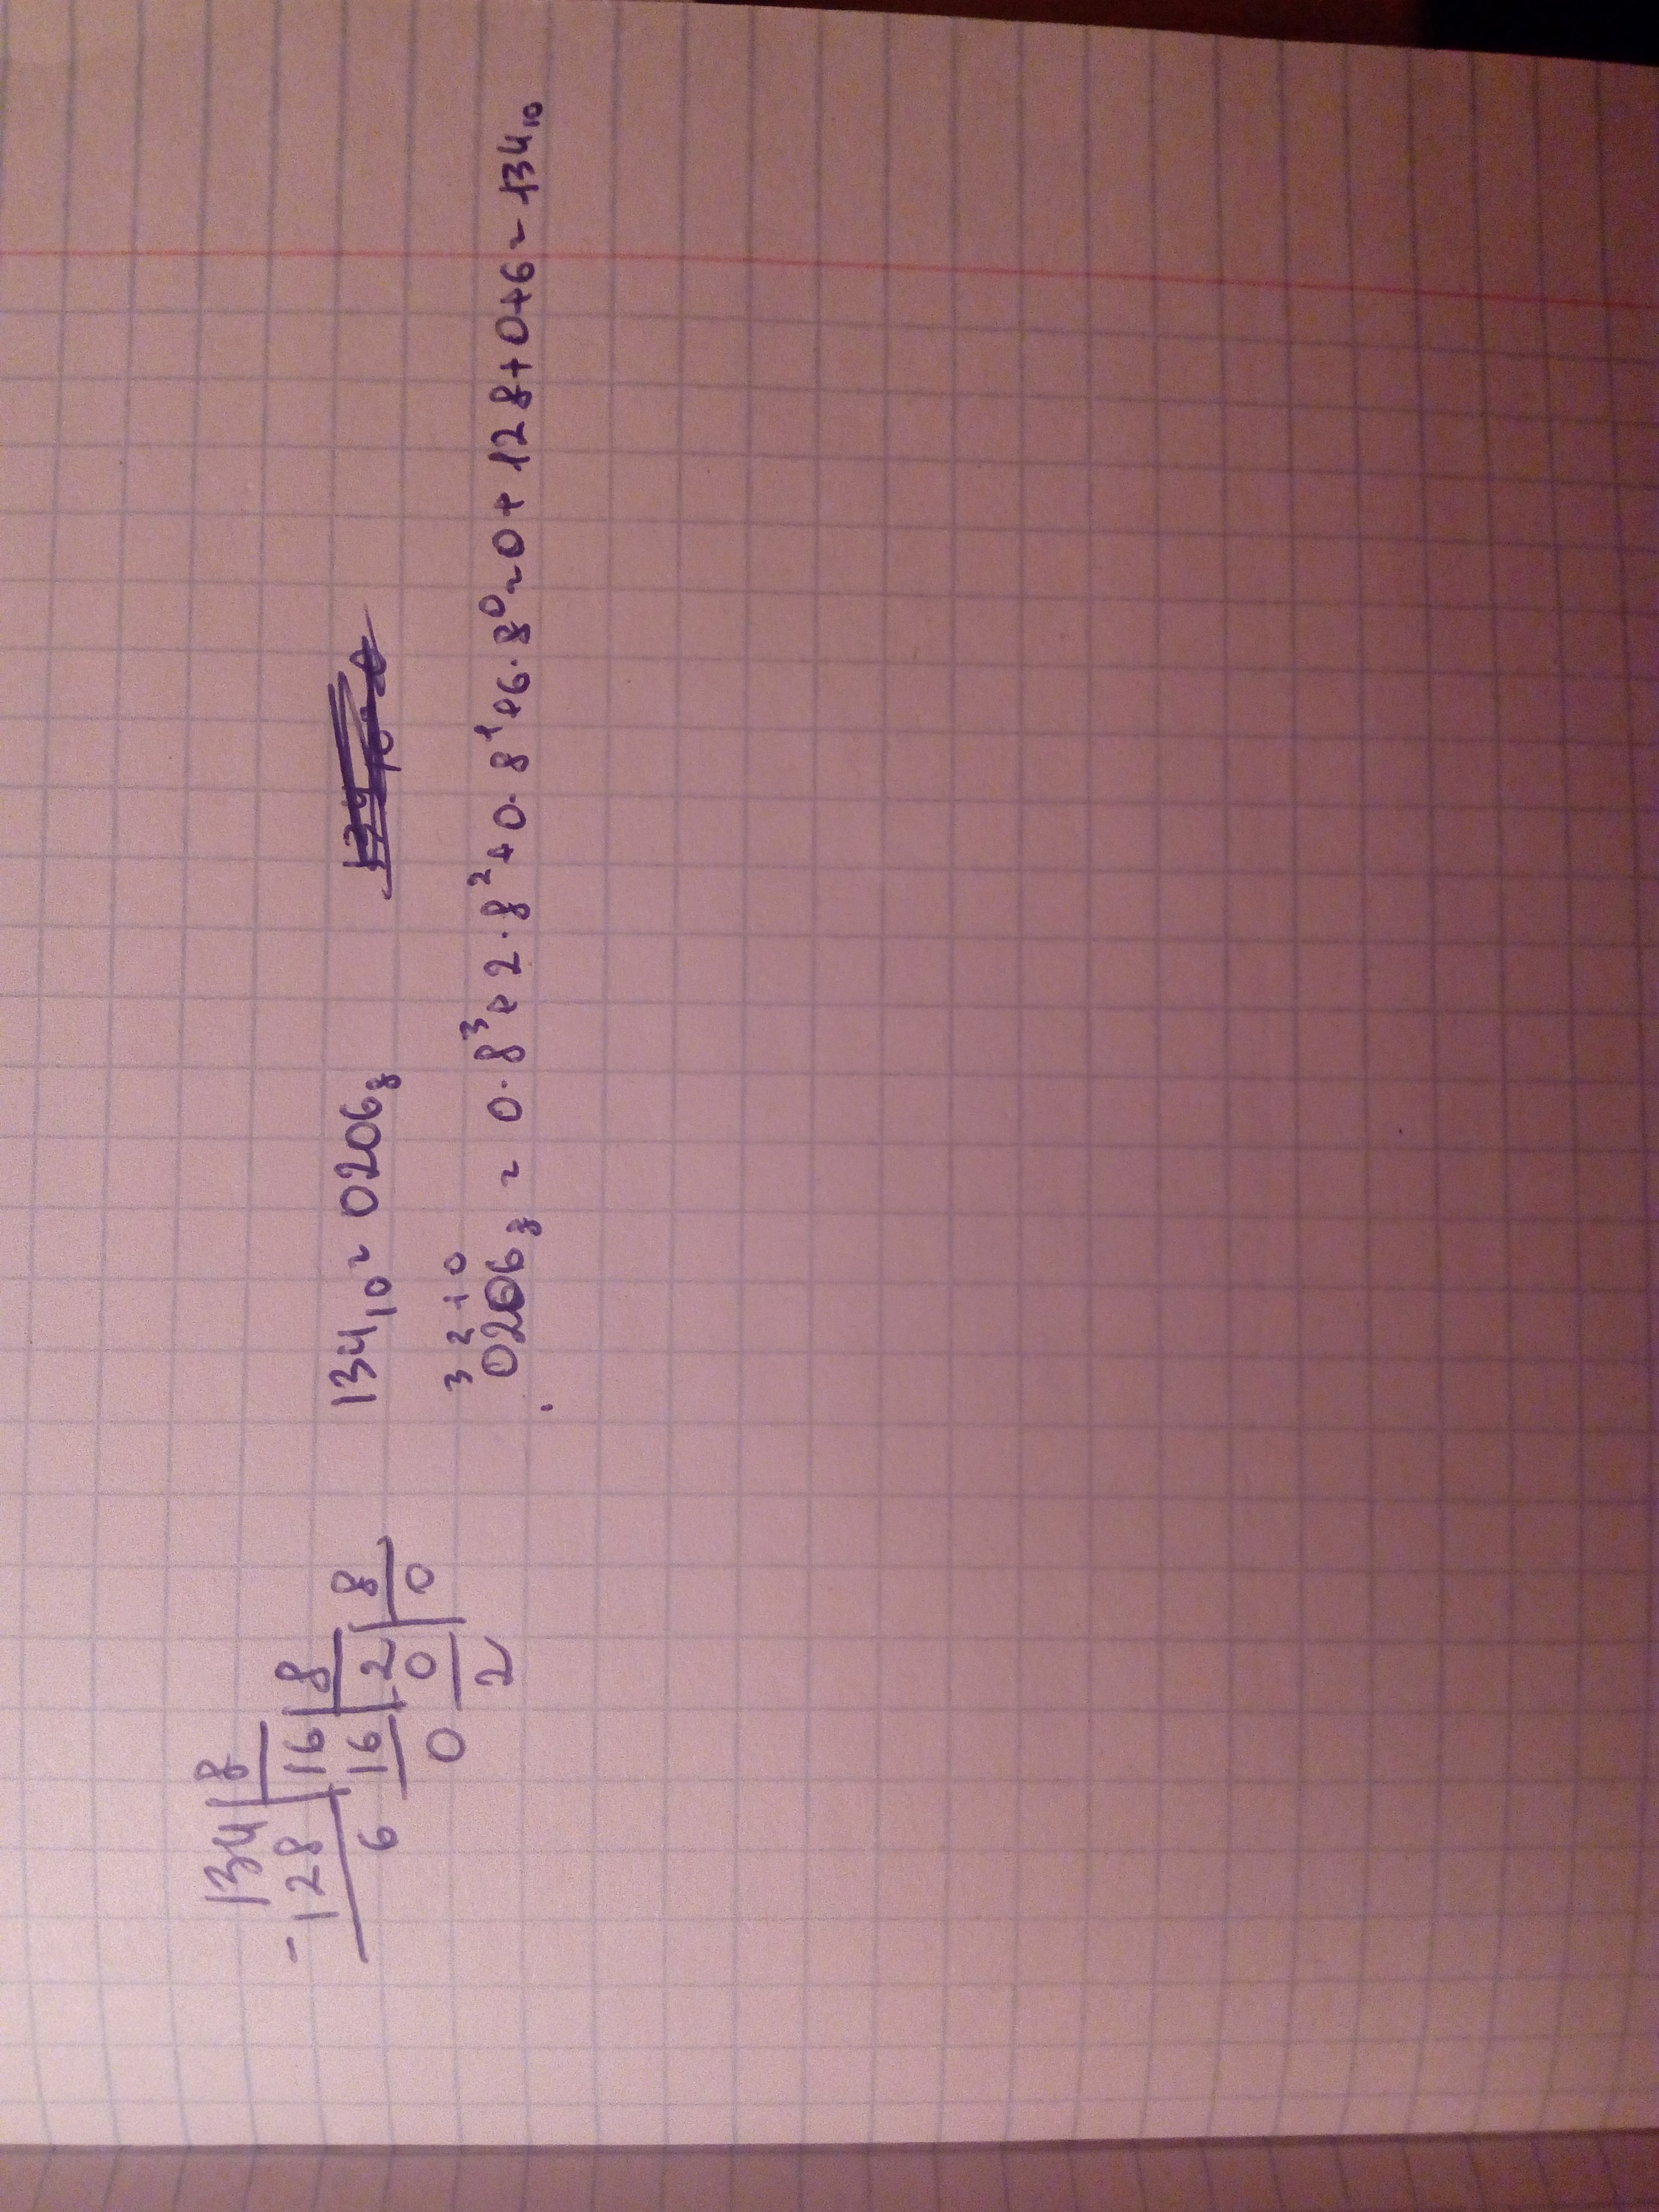 134 | 8
- 128 | 16 | 8
6 16 | 2 | 8
0 0 | 0
2
134₁₀ = 0206₈
3 2 1 0
0206₈ = 0·8³+2·8²+0·8¹+6·8⁰=0+128+0+6=134₁₀